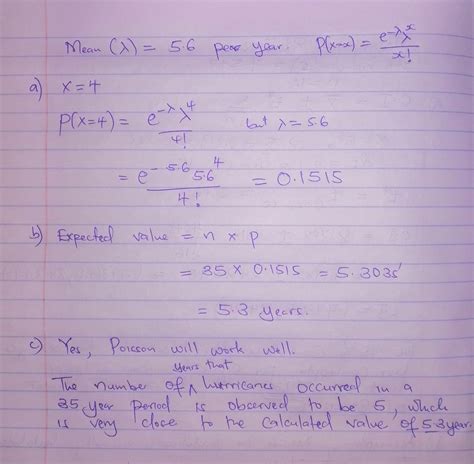 Mean (λ) = 5.6 per year. P(X=x) = e^-λ λ^x / x!
a) x = 4
P(X=4) = e^-λ λ^4 / 4! but λ = 5.6
= e^-5.6 5.6^4 / 4! = 0.1515
b) Expected value = n × p
= 35 × 0.1515 = 5.3035
= 5.3 years.
c) Yes, Poisson will work well.
The number of years that hurricanes occurred in a
35 year period is observed to be 5, which
is very close to the calculated value of 5.3 year.